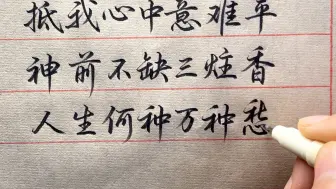 抵我心中意难平
神前不缺三炷香
人生何种万种愁